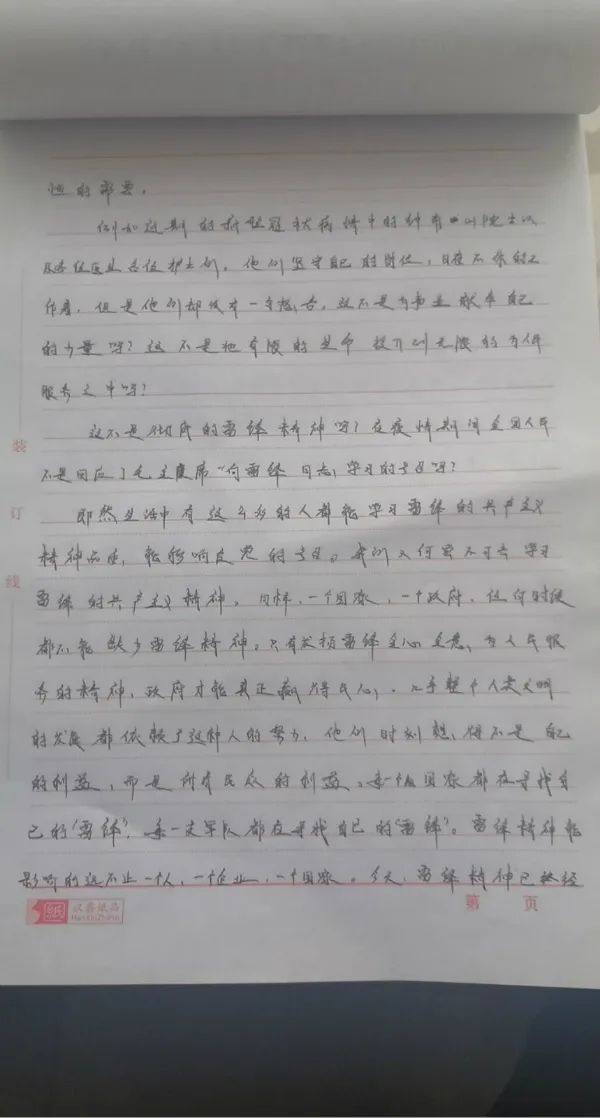 恒的需要。
例如近期的新型冠状病情中的钟南山院士以
及各位医生各位护士们。他们坚守自己的岗位，日夜不停的工
作着，但是他们都没有一句怨言，这不是为事业献奉自己
的力量吗？这不是把有限的生命投入到无限的为人民
服务之中吗？
这不是人民的雷锋精神吗？在疫情期间全国人民
不是回应了毛主席"向雷锋同志学习的号召吗？
即然生活中有这么多的人都能学习雷锋的共产主义
精神品质，能够响应党的号召。我们又何尝不可去学习
雷锋的共产主义精神。同样，一个国家，一个政府，任何时候
都不能缺少雷锋精神。只有发扬雷锋全心全意，为人民服
务的精神，政府才能真正赢得民心，几乎整个人类文明
的发展都依赖了这种人的努力，他们时刻想得不是自己
的利益，而是所有民众的利益。每一个国家都在寻找自
己的"雷锋"，每一支军队都在寻找自己的"雷锋"。雷锋精神能
影响的远不止一个人，一个企业，一个国家。今天，雷锋精神已经
装
订
线
汉鑫纸品
HanXinZhiPin
第 页